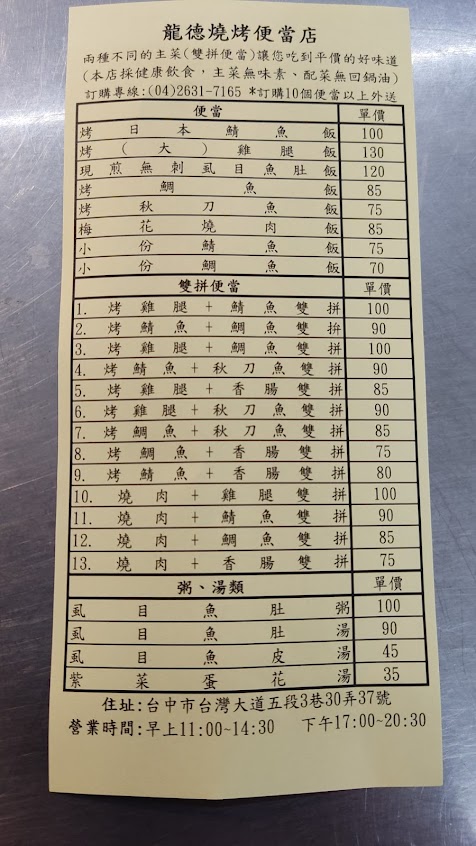 龍德燒烤便當店
兩種不同的主菜(雙拼便當)讓您吃到平價的好味道
(本店採健康飲食，主菜無味素、配菜無回鍋油)
訂購專線:(04)2631-7165 *訂購10個便當以上外送
便當 單價
烤日本鯖魚飯 100
烤(大)雞腿飯 130
現煎無刺虱目魚肚飯 120
烤鯛魚飯 85
烤秋刀魚飯 75
梅花燒肉飯 85
小份鯖魚飯 75
小份鯛魚飯 70
雙拼便當 單價
1. 烤雞腿+鯖魚雙拼 100
2. 烤鯖魚+鯛魚雙拚 90
3. 烤雞腿+鯛魚雙拼 100
4. 烤鯖魚+秋刀魚雙拼 90
5. 烤雞腿+香腸雙拼 85
6. 烤雞腿+秋刀魚雙拼 90
7. 烤鯛魚+秋刀魚雙拼 85
8. 烤鯛魚+香腸雙拼 75
9. 烤鯖魚+香腸雙拼 80
10. 燒肉+雞腿雙拼 100
11. 燒肉+鯖魚雙拼 90
12. 燒肉+鯛魚雙拼 85
13. 燒肉+香腸雙拼 75
粥、湯類 單價
虱目魚肚粥 100
虱目魚肚湯 90
虱目魚皮湯 45
紫菜蛋花湯 35
住址:台中市台灣大道五段3巷30弄37號
營業時間:早上11:00~14:30 下午17:00~20:30